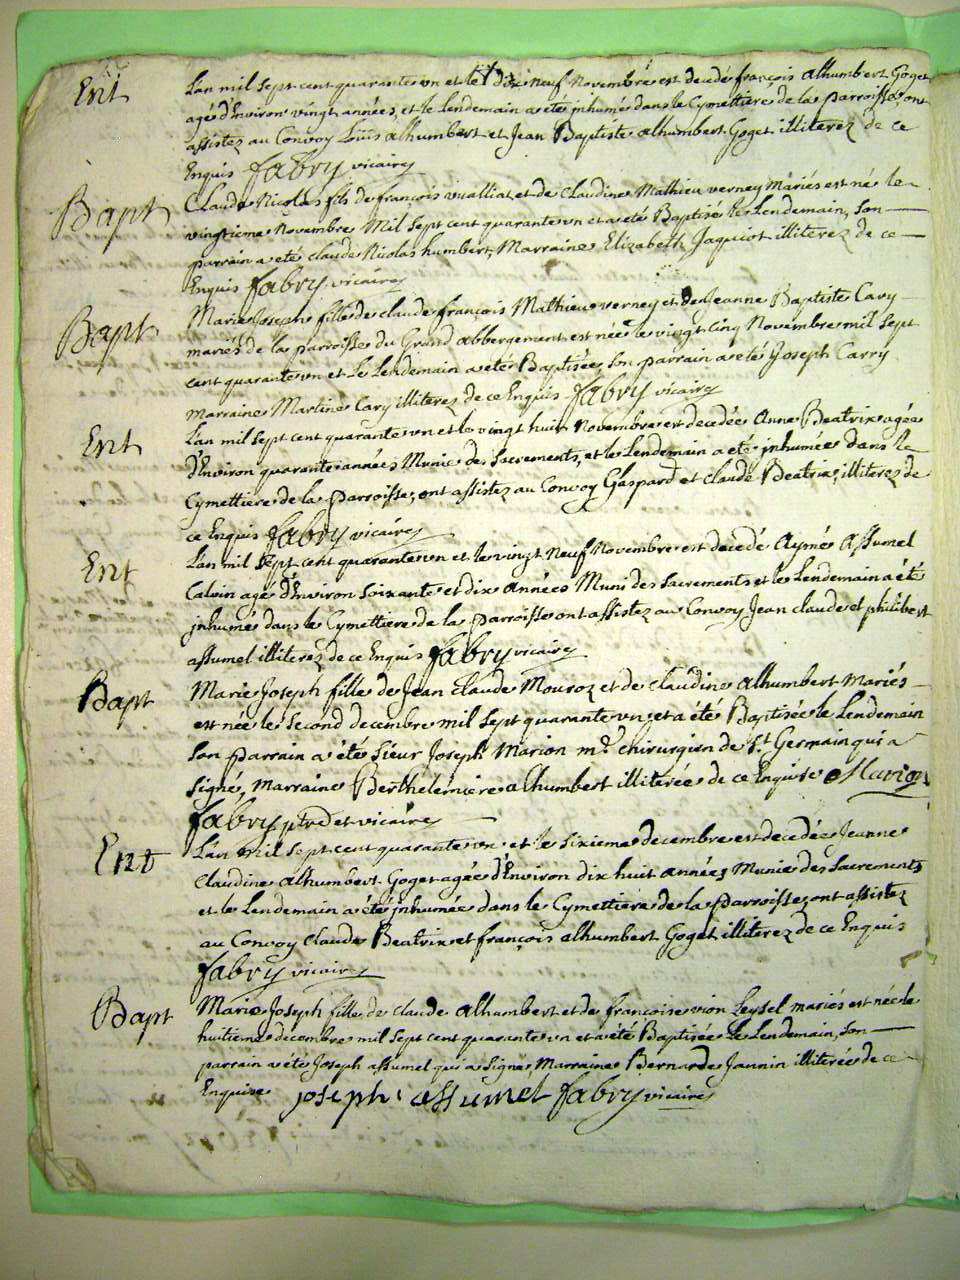 Ent
L'an mil sept cent quarante un et le dix neuf Novembre est decedé françois alhumbert Goget
agé d'Environ vingt années, et le lendemain a eté inhumé dans le Cymettiere de la parroisse, ont
assistez au Convoy Loüis alhumbert et Jean Baptiste alhumbert Goget illiterez de ce
Enquis fabry vicaire
Bapt
Claude Nicolas fils de françois vuailliat et de Claudine Mathieu verney Mariés est né le
vingtieme Novembre Mil sept cent quarante un et a eté Baptisé le Lendemain, son
parrain a eté claude Nicolas humbert, Marraine Elizabeth Jaquiot illiterez de ce
Enquis fabry vicaire
Bapt
Marie Joseph fille de claude françois Mathieu verney et de Jeanne Baptiste Cary
mariés de la parroisse du Grand abbergement est née le vingt cinq Novembre mil sept
cent quarante un et Le Lendemain a eté Baptisée, son parrain a eté Joseph Carry
marraine Martine Cary illiterez de ce Enquis fabry vicaire
Ent
L'an mil sept cent quarante un et le vingt huit Novembre est decedée Anne Beatrix agée
d'Environ quarante années Munie des Sacrements, et le Lendemain a eté inhumée dans le
Cymettiere de la parroisse, ont assistez au Convoy Gaspard et claude Beatrix, illiterez de
ce Enquis fabry vicaire
Ent
L'an mil sept cent quarante un et le vingt neuf Novembre est decedé Aymé Assumel
Calvin agé d'Environ soixante et dix années Muni des Sacrements et le Lendemain a eté
inhumé dans le Cymettiere de la parroisse ont assistez au Convoy Jean claude et philibert
assumel illiterez de ce Enquis fabry vicaire
Bapt
Marie Joseph fille de Jean Claude Mouroz et de claudine alhumbert Mariés
est née le second decembre mil sept quarante un, et a été Baptisée le Lendemain
son parrain a été Sieur Joseph Marion mᵉ chirurgien de Sᵗ Germain qui a
signé, Marraine Berthelemiere alhumbert illiterée de ce Enquise Marion
fabry ptre et vicaire
Ent
L'an mil sept cent quarante un et le sixieme decembre est decedée Jeanne
Claudine alhumbert Goget agée d'Environ dix huit années Munie des Sacrements
et le Lendemain a été inhumée dans le Cymettiere de la parroisse, ont assistez
au Convoy Claude Beatrix et françois alhumbert Goget illiterez de ce Enquis
fabry vicaire
Bapt
Marie Joseph fille de claude alhumbert et de françoise vion Leysel mariés est née le
huitieme decembre mil sept cent quarante un et a eté Baptisée Le Lendemain, son
parrain a eté Joseph assumel qui a signé, Marraine Bernarde Jannin illiterée de ce
Enquise joseph assumel fabry vicaire